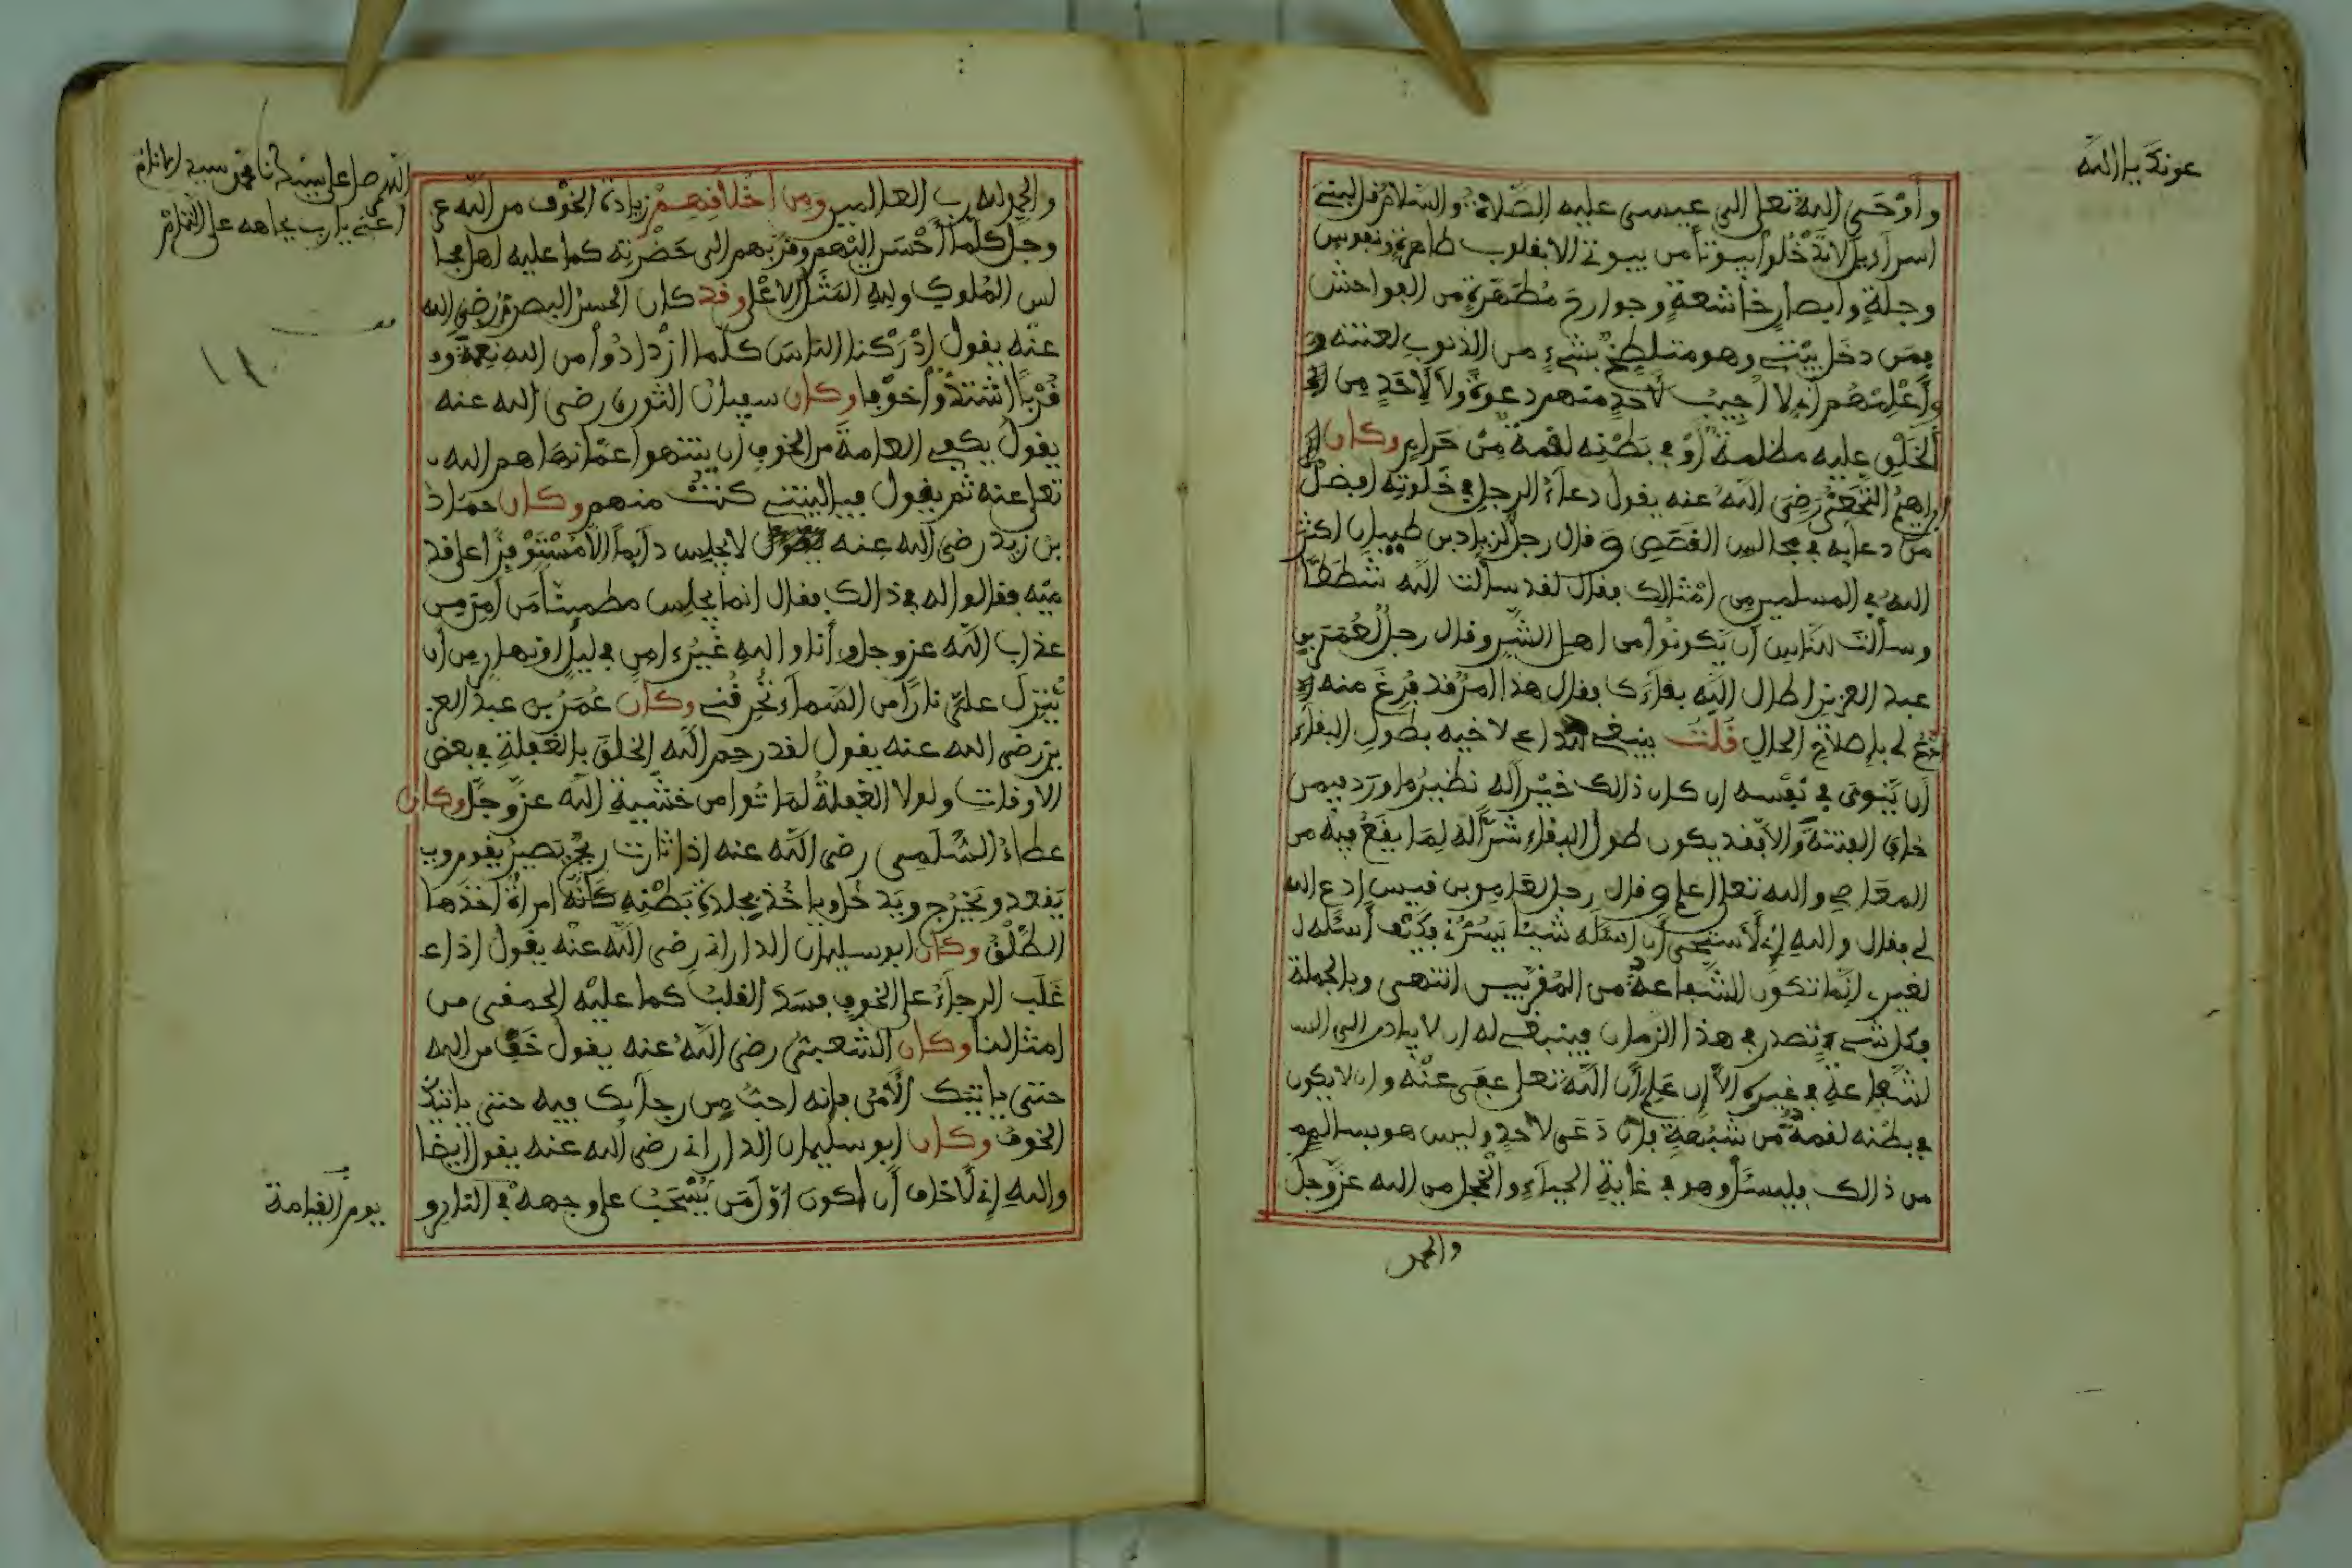 عونك يا الله
وأوحى الله تعلى إلى عيسى عليه الصلاة والسلام قل لبني
اسراءيل لا تدخلوا بيوتا من بيوتي إلا بقلوب طاهرة ونفوس
وجلة وأبصار خاشعة وجوارح مطهرة من الفواحش
فمن دخل بيتي وهو متلطخ بشيء من الذنوب لعنته و
وأعلمهم أني لا أجيب لأحد منهم دعوة ولا لأحد من
الخلق عليه مظلمة أو في بطنه لقمة من حرام وكان إ
براهيم النخعي رضي الله عنه يقول دعاء الرجل في خلوته أفضل
من دعايه في مجالس القصص وقال رجل لزياد بن ظبيان أكثر
الله في المسلمين من أمثالك فقال لقد سألت الله شططا
وسألت للناس أن يكونوا من أهل الشر وقال رجل لعمر بن
عبد العزيز أطال الله بقاءك فقال هذا أمر قد فرغ منه
ادع لي بإصلاح الحال قلت ينبغي للداع لأخيه بطول البقاء
أن ينوي في نفسه إن كان ذلك خير له نظير ما ورد فيمن
خاف الفتنة وإلا فقد يكون طول البقاء شرا له لما يقع فيه من
المعاصي والله تعلى أعلم وقال رجل لعامر بن قيس ادع الله
لي فقال والله إني لأستحيي أن أسئله شيئا يسرني فكيف أسئله ل
لغيري إنما تكون الشفاعة من المقربين انتهى وبالجملة
فكل شيء تصدر في هذا الزمان فينبغي له أن لا يبادر إلى ال
لشفاعة في غيره إلا إن علم أن الله تعلى عفى عنه وان لا يكون
في بطنه لقمة من شبهة فإن دعى لأحد وليس هو بسالم
من ذالك فليسئل وهو في غاية الحياء والخجل من الله عز وجل
والحمد
والحمد لله رب العالمين ومن أخلاقهم زيادة الخوف من الله عز
وجل كلما أحسن إليهم وقربهم إلى حضرته كما عليه أهل مجا
لس الملوك ولله المثل الأعلى وقد كان الحسن البصري رضي الله
عنه يقول أدركنا الناس كلما ازدادوا من الله نعمة و
قربا اشتدوا خوفا وكان سفيان الثوري رضي الله عنه
يقول يكفي العامة من الخوف أن ينتهوا عما نهاهم الله
تعلى عنه ثم يقول فيا ليتني كنت منهم وكان حماد
بن زيد رضي الله عنه لا يجلس دآيما إلا مستوفزا على قد
ميه فقالوا له في ذالك فقال إنما يجلس مطمينا من أمن من
عذاب الله عز وجل وأنا والله غير ءامن في ليل أو نهار من أن
ينزل علي نارا من السماء تحرقني وكان عمر بن عبد العز
يز رضي الله عنه يقول لقد رحم الله الخلق بالغفلة في بعض
الأوقات ولولا الغفلة لماتوا من خشية الله عز وجل وكان
عطاء السلمي رضي الله عنه إذا ثارت ريح يصير يقوم و
يقعد ويخرج ويدخل ويأخذ بجلدة بطنه كأنه امرأة أخذها
الطلق وكان أبو سليمان الداراني رضي الله عنه يقول إذا
غلب الرجاء على الخوف فسد القلب كما عليه الحمقى من
أمثالنا وكان الشعبي رضي الله عنه يقول خف من الله
حتى ياتيك الأمن فإنه أحب من رجآيك فيه حتى ياتيك
الخوف وكان أبو سليمان الداراني رضي الله عنه يقول أيضا
والله إني لأخاف أن أكون أول من يسحب على وجهه في النار و
اللهم صل على سيدنا محمد سيد الأنام
أغثني يا رب بجاهه على التمام
يوم القيامة